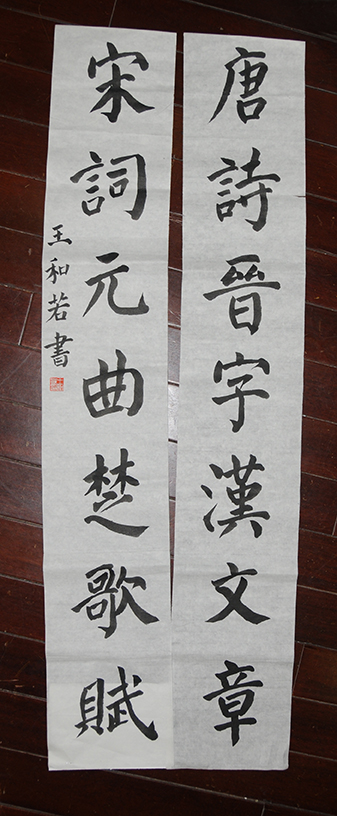 唐詩晉字漢文章
宋詞元曲楚歌賦
王和若書